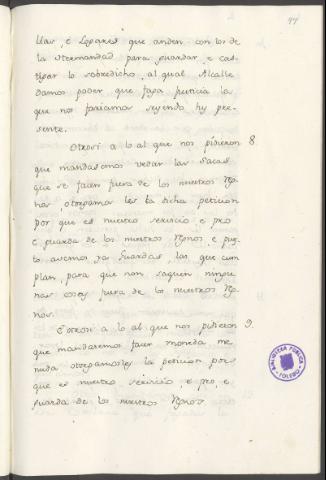 77
llas, e Logares que anden con los de
la Hermandad para guardar, e cas-
tigar lo sobredicho, al qual Alcalle
damos poder que faga justicia la
que nos fariamos seyendo hy pre-
sente.
Otrosi a lo al que nos pidieron 8
que mandasemos vedar las Sacas
que se facen fuera de los nuestros Rg-
nos otorgamos les la dicha peticion
por que es nuestro servicio e pro
e guarda de los nuestros Rgnos e pues-
to avemos ya Guardas, las que cum
plan, para que non saquen ningu
nas cosas fuera de los nuestros Rg-
nos.
Et otrosi a lo al que nos pidieron 9.
que mandaremos facer moneda me
nuda otorgamosles la peticion por-
que es nuestro servicio, e pro, e
guarda de los nuestros Rgnos
BIBLIOTECA PÚBLICA
TOLEDO